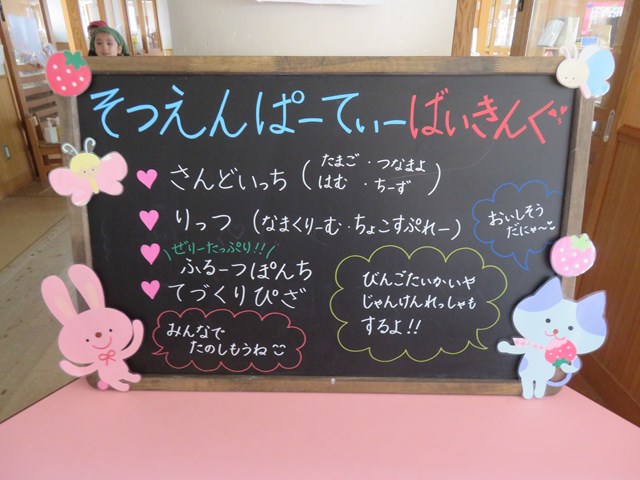 そつえんぱーてぃーばいきんぐ
さんどいっち(たまご・つなまよ
はむ・ちーず)
りっつ(なまくりーむ・ちょこすぷれー)
ぜりーたっぷり!!
ふるーつぽんち
てづくりぴざ
おいしそう
だにゃ〜
びんごたいかいや
じゃんけんれっしゃも
するよ!!
みんなで
たのしもうね